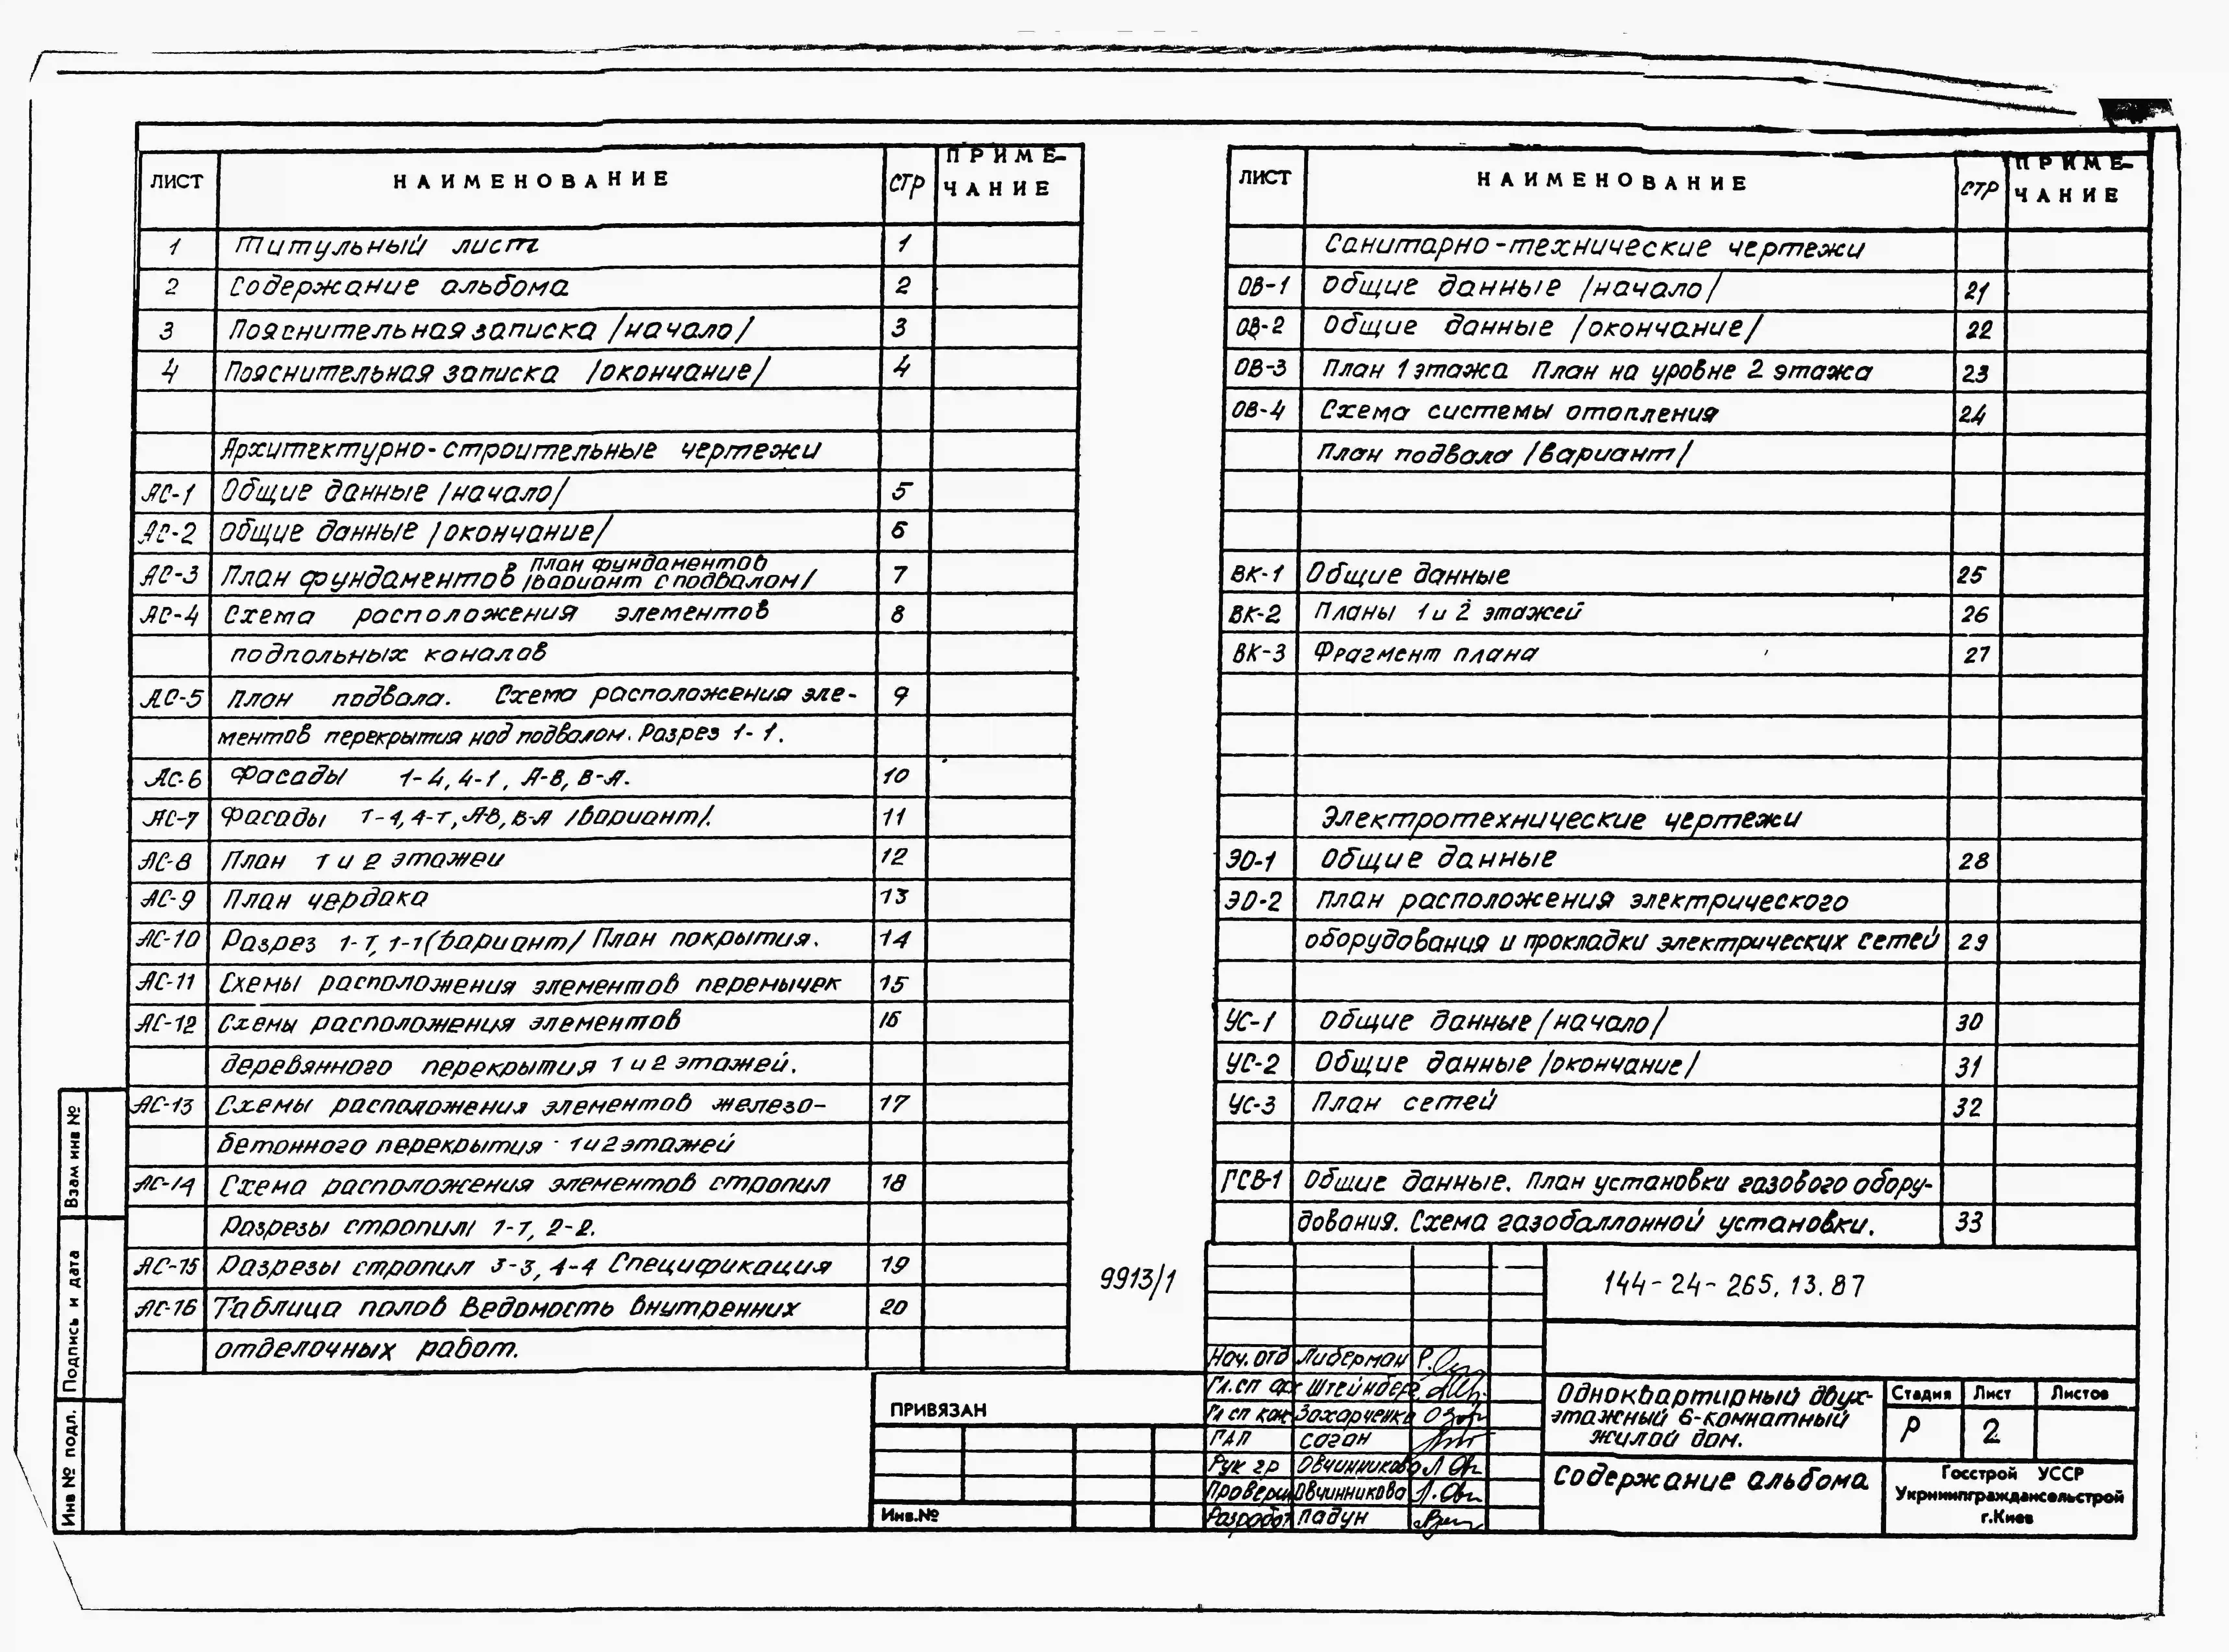 ЛИСТ НАИМЕНОВАНИЕ СТР ПРИМЕ-
ЧАНИЕ
1 Титульный лист 1
2 Содержание альбома 2
3 Пояснительная записка /начало/ 3
4 Пояснительная записка /окончание/ 4
Архитектурно-строительные чертежи
АС-1 Общие данные /начало/ 5
АС-2 Общие данные /окончание/ 6
АС-3 План фундаментов План фундаментов /вариант с подвалом/ 7
АС-4 Схема расположения элементов 8
подпольных каналов
АС-5 План подвала. Схема расположения эле- 9
ментов перекрытия над подвалом. Разрез 1-1.
АС-6 Фасады 1-4, 4-1, А-В, В-А. 10
АС-7 Фасады 1-4, 4-1, А-В, В-А /вариант/. 11
АС-8 План 1 и 2 этажей 12
АС-9 План чердака 13
АС-10 Разрез 1-1, 1-1 (вариант/ План покрытия. 14
АС-11 Схемы расположения элементов перемычек 15
АС-12 Схемы расположения элементов 16
деревянного перекрытия 1 и 2 этажей.
АС-13 Схемы расположения элементов железо- 17
бетонного перекрытия 1 и 2 этажей
АС-14 Схема расположения элементов стропил 18
Разрезы стропил 1-1, 2-2.
АС-15 Разрезы стропил 3-3, 4-4 Спецификация 19
АС-16 Таблица полов Ведомость внутренних 20
отделочных работ.
ЛИСТ НАИМЕНОВАНИЕ СТР ПРИМЕ-
ЧАНИЕ
Санитарно-технические чертежи
ОВ-1 Общие данные /начало/ 21
ОВ-2 Общие данные /окончание/ 22
ОВ-3 План 1 этажа План на уровне 2 этажа 23
ОВ-4 Схема системы отопления 24
План подвала /вариант/
ВК-1 Общие данные 25
ВК-2 Планы 1 и 2 этажей 26
ВК-3 Фрагмент плана 27
Электротехнические чертежи
ЭО-1 Общие данные 28
ЭО-2 План расположения электрического
оборудования и прокладки электрических сетей 29
УС-1 Общие данные /начало/ 30
УС-2 Общие данные /окончание/ 31
УС-3 План сетей 32
ГСВ-1 Общие данные. План установки газового обору-
дования. Схема газобаллонной установки. 33
9913/1
144-24-265.13.87
Нач. отд Либерман
Гл. сп арх Штейнберг
Гл сп кон Захарченко
ГАП Саган
Рук гр Овчинникова
Проверил Овчинникова
Разработ Падун
Одноквартирный двух-
этажный 6-комнатный
жилой дом.
Стадия Лист Листов
Р 2
Содержание альбома
Госстрой УССР
Укрниипграждансельстрой
г.Киев
ПРИВЯЗАН
Инв.№
Взам инв №
Подпись и дата
Инв № подл.